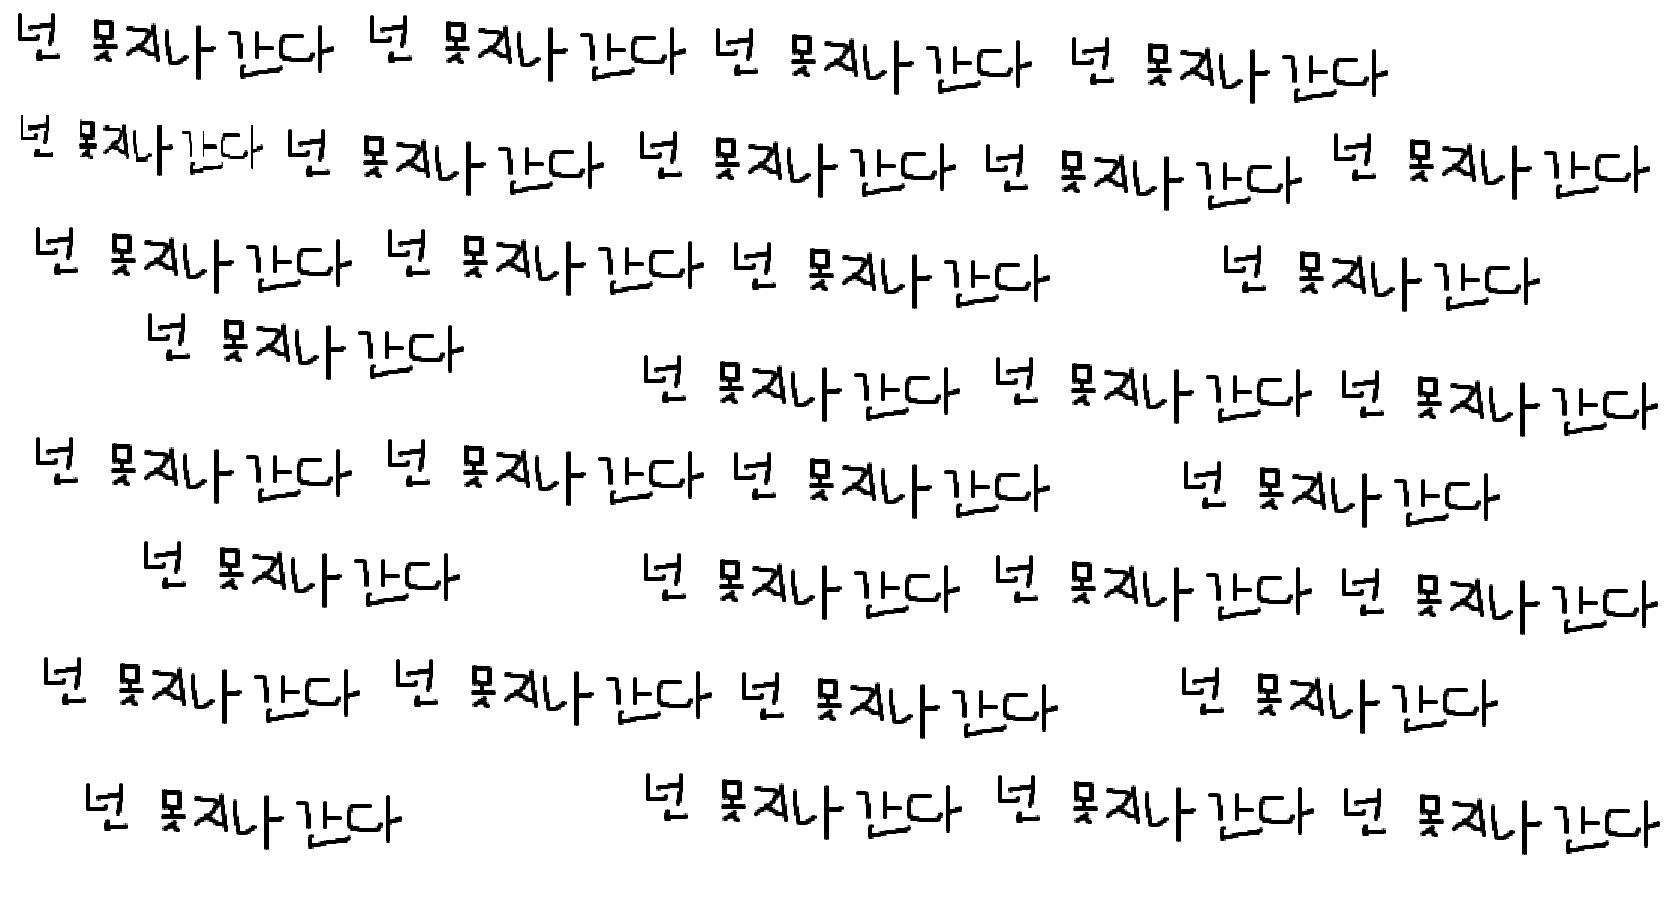 넌 못지나 간다 넌 못지나 간다 넌 못지나 간다 넌 못지나 간다
넌 못지나 간다 넌 못지나 간다 넌 못지나 간다 넌 못지나 간다 넌 못지나 간다
넌 못지나 간다 넌 못지나 간다 넌 못지나 간다 넌 못지나 간다
넌 못지나 간다 넌 못지나 간다 넌 못지나 간다 넌 못지나 간다
넌 못지나 간다 넌 못지나 간다 넌 못지나 간다 넌 못지나 간다
넌 못지나 간다 넌 못지나 간다 넌 못지나 간다 넌 못지나 간다
넌 못지나 간다 넌 못지나 간다 넌 못지나 간다 넌 못지나 간다
넌 못지나 간다 넌 못지나 간다 넌 못지나 간다 넌 못지나 간다